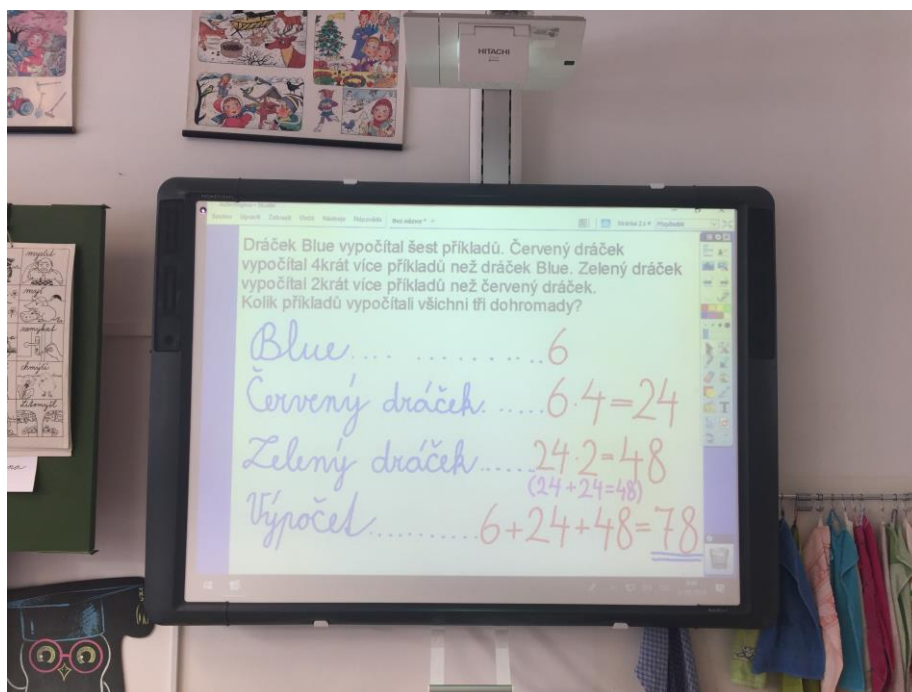 HITACHI
Soubor Úpravy Zobrazit Vložit Nástroje Nápověda Bez názvu *
Dráček Blue vypočítal šest příkladů. Červený dráček
vypočítal 4krát více příkladů než dráček Blue. Zelený dráček
vypočítal 2krát více příkladů než červený dráček.
Kolik příkladů vypočítali všichni tři dohromady?
Blue.... .........6
Červený dráček. .....6·4=24
Zelený dráček......24·2=48
(24+24=48)
Výpočet...........6+24+48=78
myslet
mýt